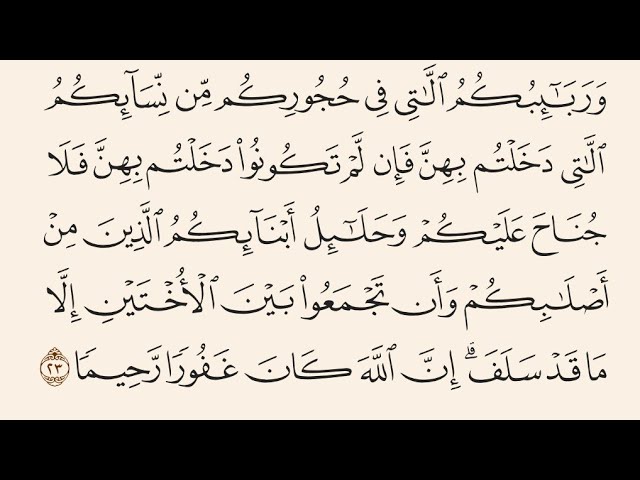 وَرَبَـٰٓئِبُكُمُ ٱلَّـٰتِى فِى حُجُورِكُم مِّن نِّسَآئِكُمُ
ٱلَّـٰتِى دَخَلْتُم بِهِنَّ فَإِن لَّمْ تَكُونُوا۟ دَخَلْتُم بِهِنَّ فَلَا
جُنَاحَ عَلَيْكُمْ وَحَلَـٰٓئِلُ أَبْنَآئِكُمُ ٱلَّذِينَ مِنْ
أَصْلَـٰبِكُمْ وَأَن تَجْمَعُوا۟ بَيْنَ ٱلْأُخْتَيْنِ إِلَّا
مَا قَدْ سَلَفَ ۗ إِنَّ ٱللَّهَ كَانَ غَفُورًا رَّحِيمًا ٢٣